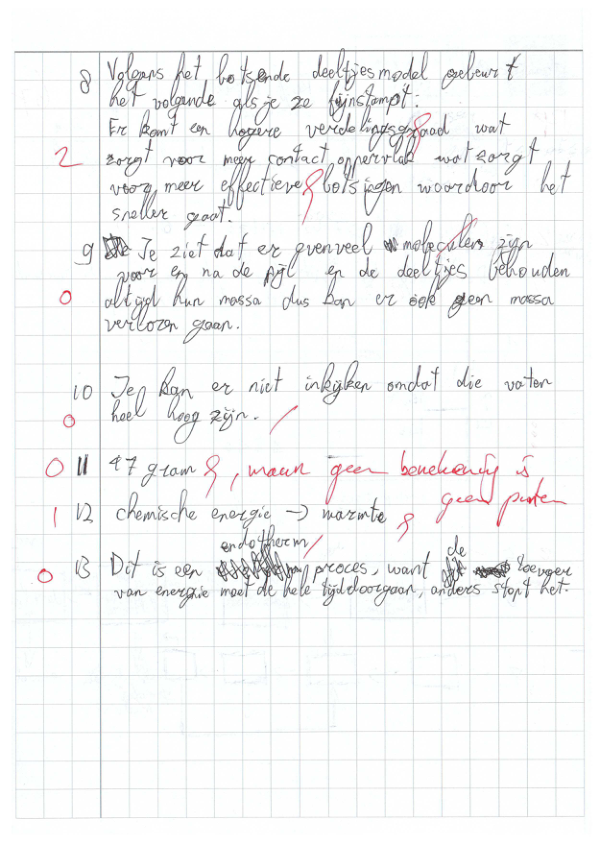 8 Volgens het botsende deeltjesmodel gebeurt
het volgende als je ze fijnstampt:
Er komt een hogere verdelingsgraad wat
2 zorgt voor meer contact oppervlak wat zorgt
voor meer effectieve botsingen waardoor het
sneller gaat.
9 Je ziet dat er evenveel moleculen zijn
voor en na de pijl en de deeltjes behouden
0 altijd hun massa dus kan er ook geen massa
verloren gaan.
10 Je kan er niet inkijken omdat die vaten
0 heel hoog zijn.
0 11 47 gram , maar geen berekening is
geen punten
1 12 chemische energie → warmte
endotherm de
0 13 Dit is een proces, want toevoer
van energie moet de hele tijd doorgaan, anders stopt het.